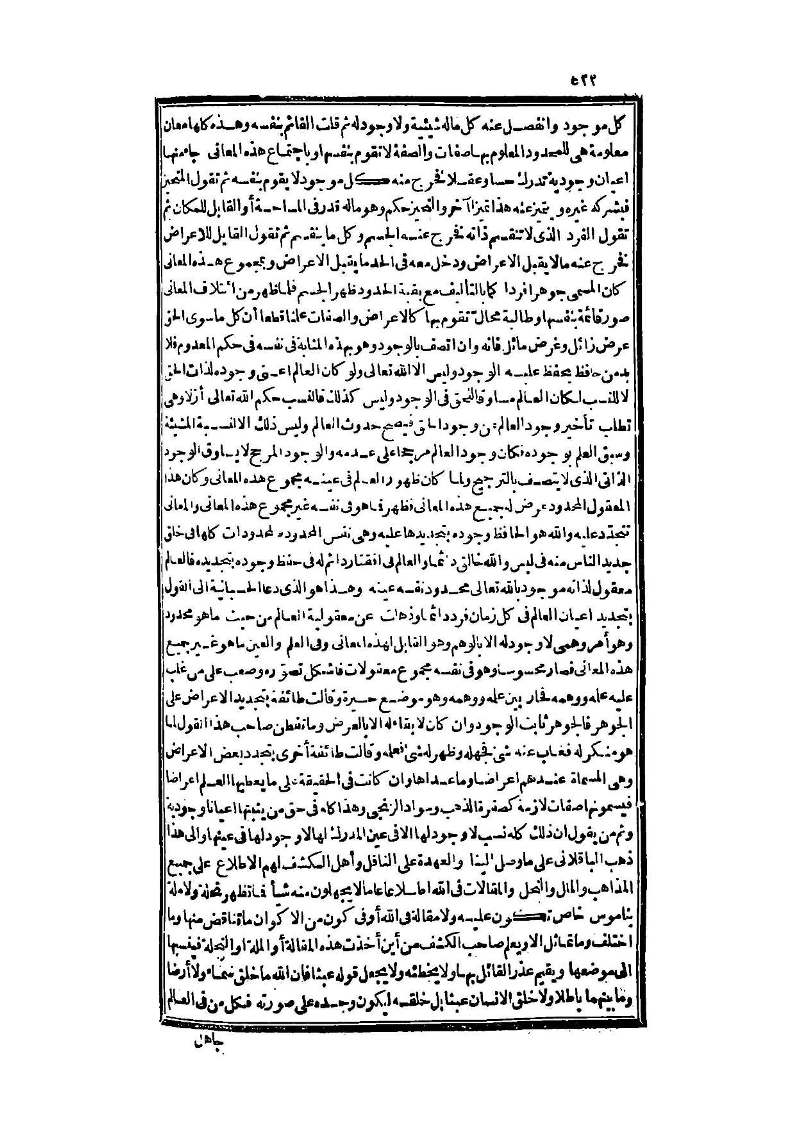 ٥٢٢
كل موجود وانفصل عنه كل ماله شيئية ولا وجود له ثم قلت القائم بنفسه وهذه كلها معان
معلومة هي للمحدود المعلوم بها صفات والصفة لا تقوم بنفسها وباجتماع هذه المعاني جاء منها
اعيان وجودية تدرك حسا وعقلا فخرج منه كل موجود لا يقوم بنفسه ثم تقول المتحيز
فيشركه غيره ويتميز عنه هذا تميزا آخر والتحيز حكم وهو ماله قدر في المساحة أو القابل للمكان ثم
تقول الفرد الذي لا تنقسم ذاته فخرج عنه الجسم وكل ما ينقسم ثم تقول القابل للاعراض
فخرج عنه ما لا يقبل الاعراض ودخل معه في الحد ما يقبل الاعراض وبمجموع هذه المعاني
كان المسمى جوهرا فردا كما بالتأليف مع بقية الحدود ظهر الجسم فلما ظهر من ائتلاف المعاني
صور قائمة بنفسها وطالبة محال تقوم بها كالاعراض والصفات علمنا قطعا أن كل ما سوى الحق
عرض زائل وغرض ماثل فانه وان اتصف بالوجود وهو بهذه المثابة في نفسه في حكم المعدوم فلا
بد من حافظ يحفظ عليه الوجود وليس الا الله تعالى ولو كان العالم اعنى وجوده لذات الحق
لا للنسب لكان العالم مساوقا للحق في الوجود وليس كذلك فالنسب حكم الله تعالى أزلا وهي
تطلب تأخير وجود العالم عن وجود الحق فيصح حدوث العالم وليس ذلك الا نسبة المشيئة
وسبق العلم بوجوده فكان وجود العالم مرجحا على عدمه والوجود المرجح لا يساوق الوجود
الذاتي الذي لا يتصف بالترجيح ولما كان ظهور العالم في عينه مجموع هذه المعاني وكان هذا
المعقول المحدود عرض له جميع هذه المعاني فظهر فما هو في نفسه غير مجموع هذه المعاني والمعاني
تتجدد عليه والله هو الحافظ وجوده بتجديدها عليه وهي نفس المحدود فالمحدودات كلها في خلق
جديد الناس منه في لبس والله خالق دائما والعالم في افتقار دائم له في حفظ وجوده بتجديده فالعالم
معقول لذاته موجود بالله تعالى فحدوده نفسه عينه وهذا هو الذي دعا الحسبانية الى القول
بتجديد اعيان العالم في كل زمان فرد دائما وذهلت عن معقولية العالم من حيث ما هو محدود
وهو أمر وهمي لا وجود له الا بالوهم وهو القابل لهذه المعاني وفي العلم والعين ما هو غير جميع
هذه المعاني فصار محسوسا وهو في نفسه مجموع معقولات فاشكل تصوره وصعب على من غلب
عليه علمه وهمه فحار بين علمه ووهمه وهو موضع حيرة وقالت طائفة بتجديد الاعراض على
الجوهر فالجوهر ثابت الوجود وان كان لا بقاء له الا بالعرض وما تفطن صاحب هذا القول لما
هو منكر له فغاب عنه شئ فجهله وظهر له شئ فعلمه وقالت طائفة أخرى بتجدد بعض الاعراض
وهي المسماة عندهم اعراضا وما عداها وان كانت في الحقيقة على ما يعطيها العلم اعراضا
فيسمونها صفات لازمة كصفرة الذهب وسواد الزنجي وهذا كله في حق من يثبتها اعيانا وجودية
وثم من يقول ان ذلك كله نسب لا وجود لها الا في عين المدرك لها لا وجود لها في عينها والى هذا
ذهب الباقلاني على ما وصل الينا والعهدة على الناقل وأهل الكشف لهم الاطلاع على جميع
المذاهب والملل والنحل والمقالات في الله اطلاعا عاما لا يجهلون منه شيأ فما تظهر نحلة ولا ملة
بناموس خاص تكون عليه ولا مقالة في الله أو في كون من الاكوان ما تناقض منها وما
اختلف وما تماثل الا ويعلم صاحب الكشف من أين أخذت هذه المقالة أو الملة أو النحلة فينسبها
الى موضعها ويقيم عذر القائل بها ولا يخطئه ولا يجعل قوله عبثا فان الله ما خلق سماء ولا أرضا
وما بينهما باطلا ولا خلق الانسان عبثا بل خلقه ليكون وحده على صورته فكل من في العالم
جاهل